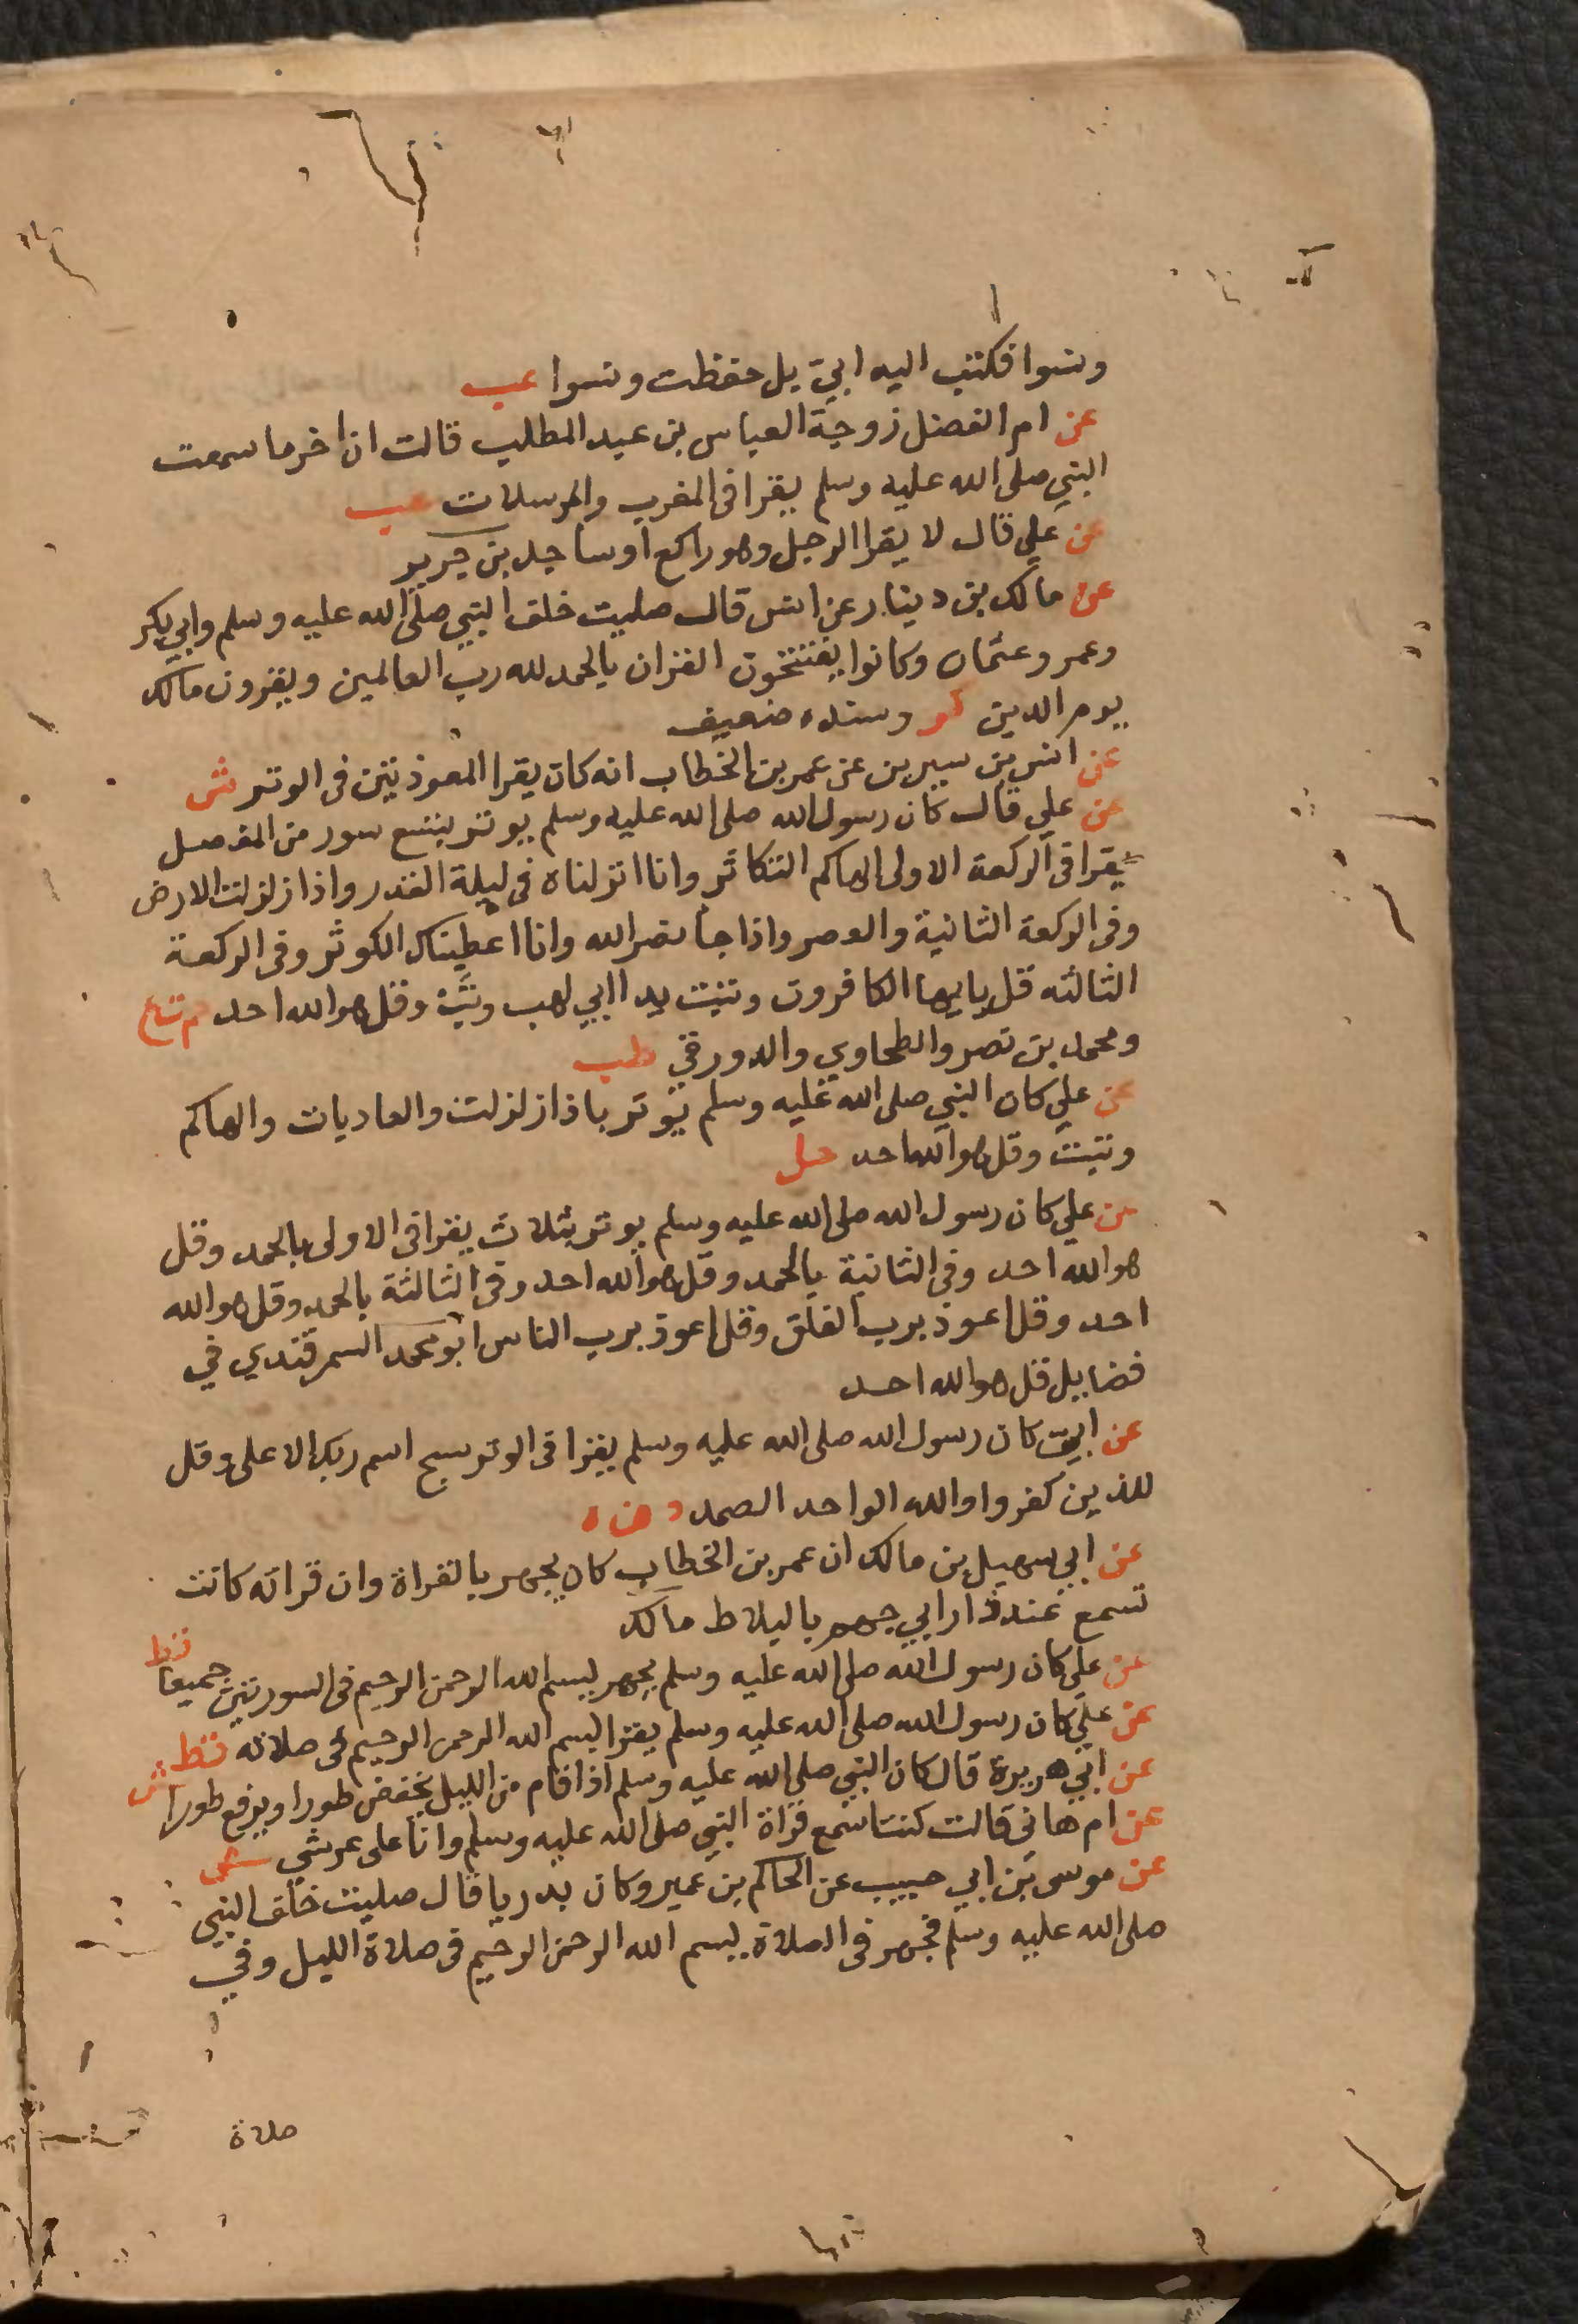 ونسوا فكتب اليه ابيّ بل حفظت ونسوا عب
عن ام الفضل زوجة العباس بن عبد المطلب قالت ان اخر ما سمعت
النبي صلى الله عليه وسلم يقرا فى المغرب والمرسلات عب
عن علي قال لا يقرا الرجل وهو راكع او ساجد بن جرير
عن مالك بن دينار عن انس قال صليت خلف النبي صلى الله عليه وسلم وابي بكر
وعمر وعثمان وكانوا يفتتحون القران بالحمد لله رب العالمين ويقرون مالك
يوم الدين وسنده ضعيف
عن انس بن سيرين عن عمر بن الخطاب انه كان يقرا المعوذتين فى الوتر ش
عن علي قال كان رسول الله صلى الله عليه وسلم يوتر بتسع سور من المفصل
يقرا فى الركعة الاولى الهاكم التكاثر وانا انزلناه فى ليلة القدر واذا زلزلت الارض
وفى الركعة الثانية والعصر واذا جا نصر الله وانا اعطيناك الكوثر وفى الركعة
الثالثه قل يايها الكافرون وتبت يدا ابي لهب وتبّ وقل هو الله احد
ومحمد بن نصر والطحاوي والدورقي طب
عن علي كان النبي صلى الله عليه وسلم يوتر باذا زلزلت والعاديات والهاكم
وتبت وقل هو الله احد حل
عن علي كان رسول الله صلى الله عليه وسلم يوتر بثلاث يقرا فى الاولى بالحمد وقل
هو الله احد وفى الثانية بالحمد وقل هو الله احد وفى الثالثة بالحمد وقل هو الله
احد وقل اعوذ برب الفلق وقل اعوذ برب الناس ابو محمد السمرقندي في
فضايل قل هو الله احد
عن ابيّ كان رسول الله صلى الله عليه وسلم يقرا فى الوتر سبح اسم ربك الاعلى وقل
للذين كفروا والله الواحد الصمد د ن ه
عن ابي سهيل بن مالك ان عمر بن الخطاب كان يجهر بالقراة وان قراته كانت
تسمع عند دار ابي جهم بالبلاط مالك
عن علي كان رسول الله صلى الله عليه وسلم يجهر ببسم الله الرحمن الرحيم فى السورتين جميعا قط
عن علي كان رسول الله صلى الله عليه وسلم يقرا بسم الله الرحمن الرحيم فى صلاته قط
عن ابي هريرة قال كان النبي صلى الله عليه وسلم اذا قام من الليل يخفض طورا ويرفع طورا ش
عن ام هاني قالت كنت اسمع قراة النبي صلى الله عليه وسلم وانا على عرشي ش
عن موسى بن ابي حبيب عن الحاكم بن عمير وكان بدريا قال صليت خلف النبي
صلى الله عليه وسلم فجهر فى الصلاة ببسم الله الرحمن الرحيم فى صلاة الليل وفي
صلاة